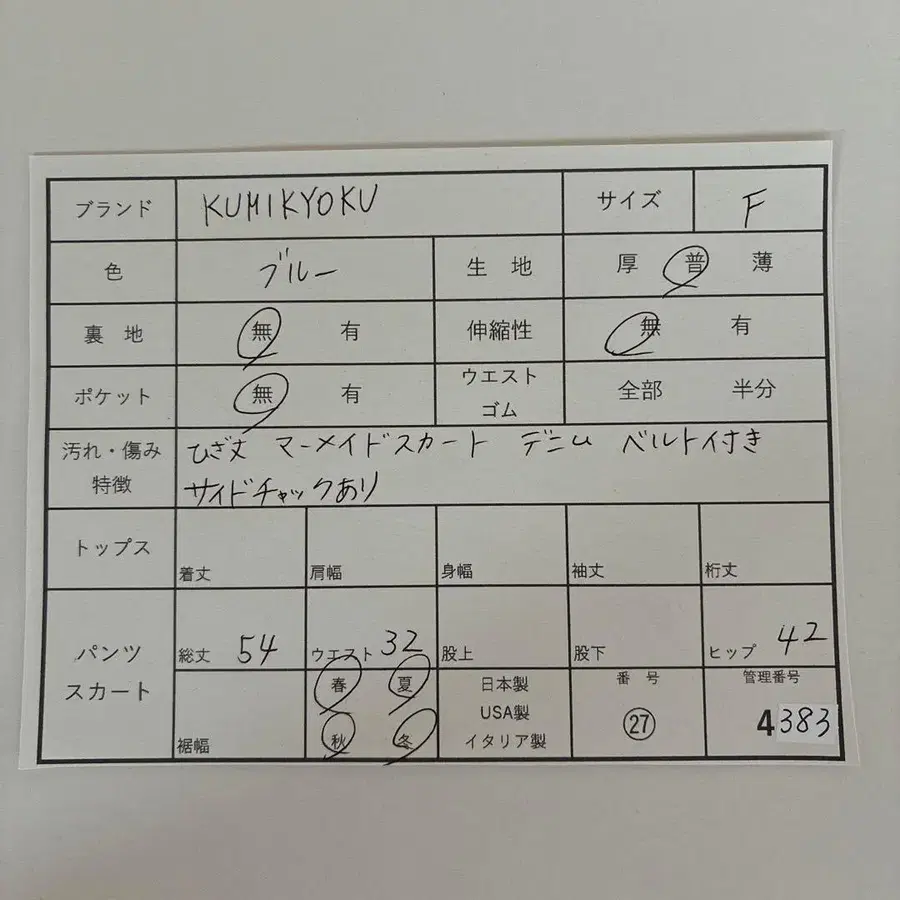 ブランド KUMIKYOKU サイズ F
色 ブルー 生地 厚 普 薄
裏地 無 有 伸縮性 無 有
ポケット 無 有 ウエストゴム 全部 半分
汚れ・傷み特徴 ひざ丈 マーメイドスカート デニム ベルト付き
サイドチャックあり
トップス 着丈 肩幅 身幅 袖丈 裄丈
パンツ スカート 総丈 54 ウエスト 32 股上 股下 ヒップ 42
裾幅 春 夏 秋 冬 日本製 USA製 イタリア製 番号 27 管理番号 4383